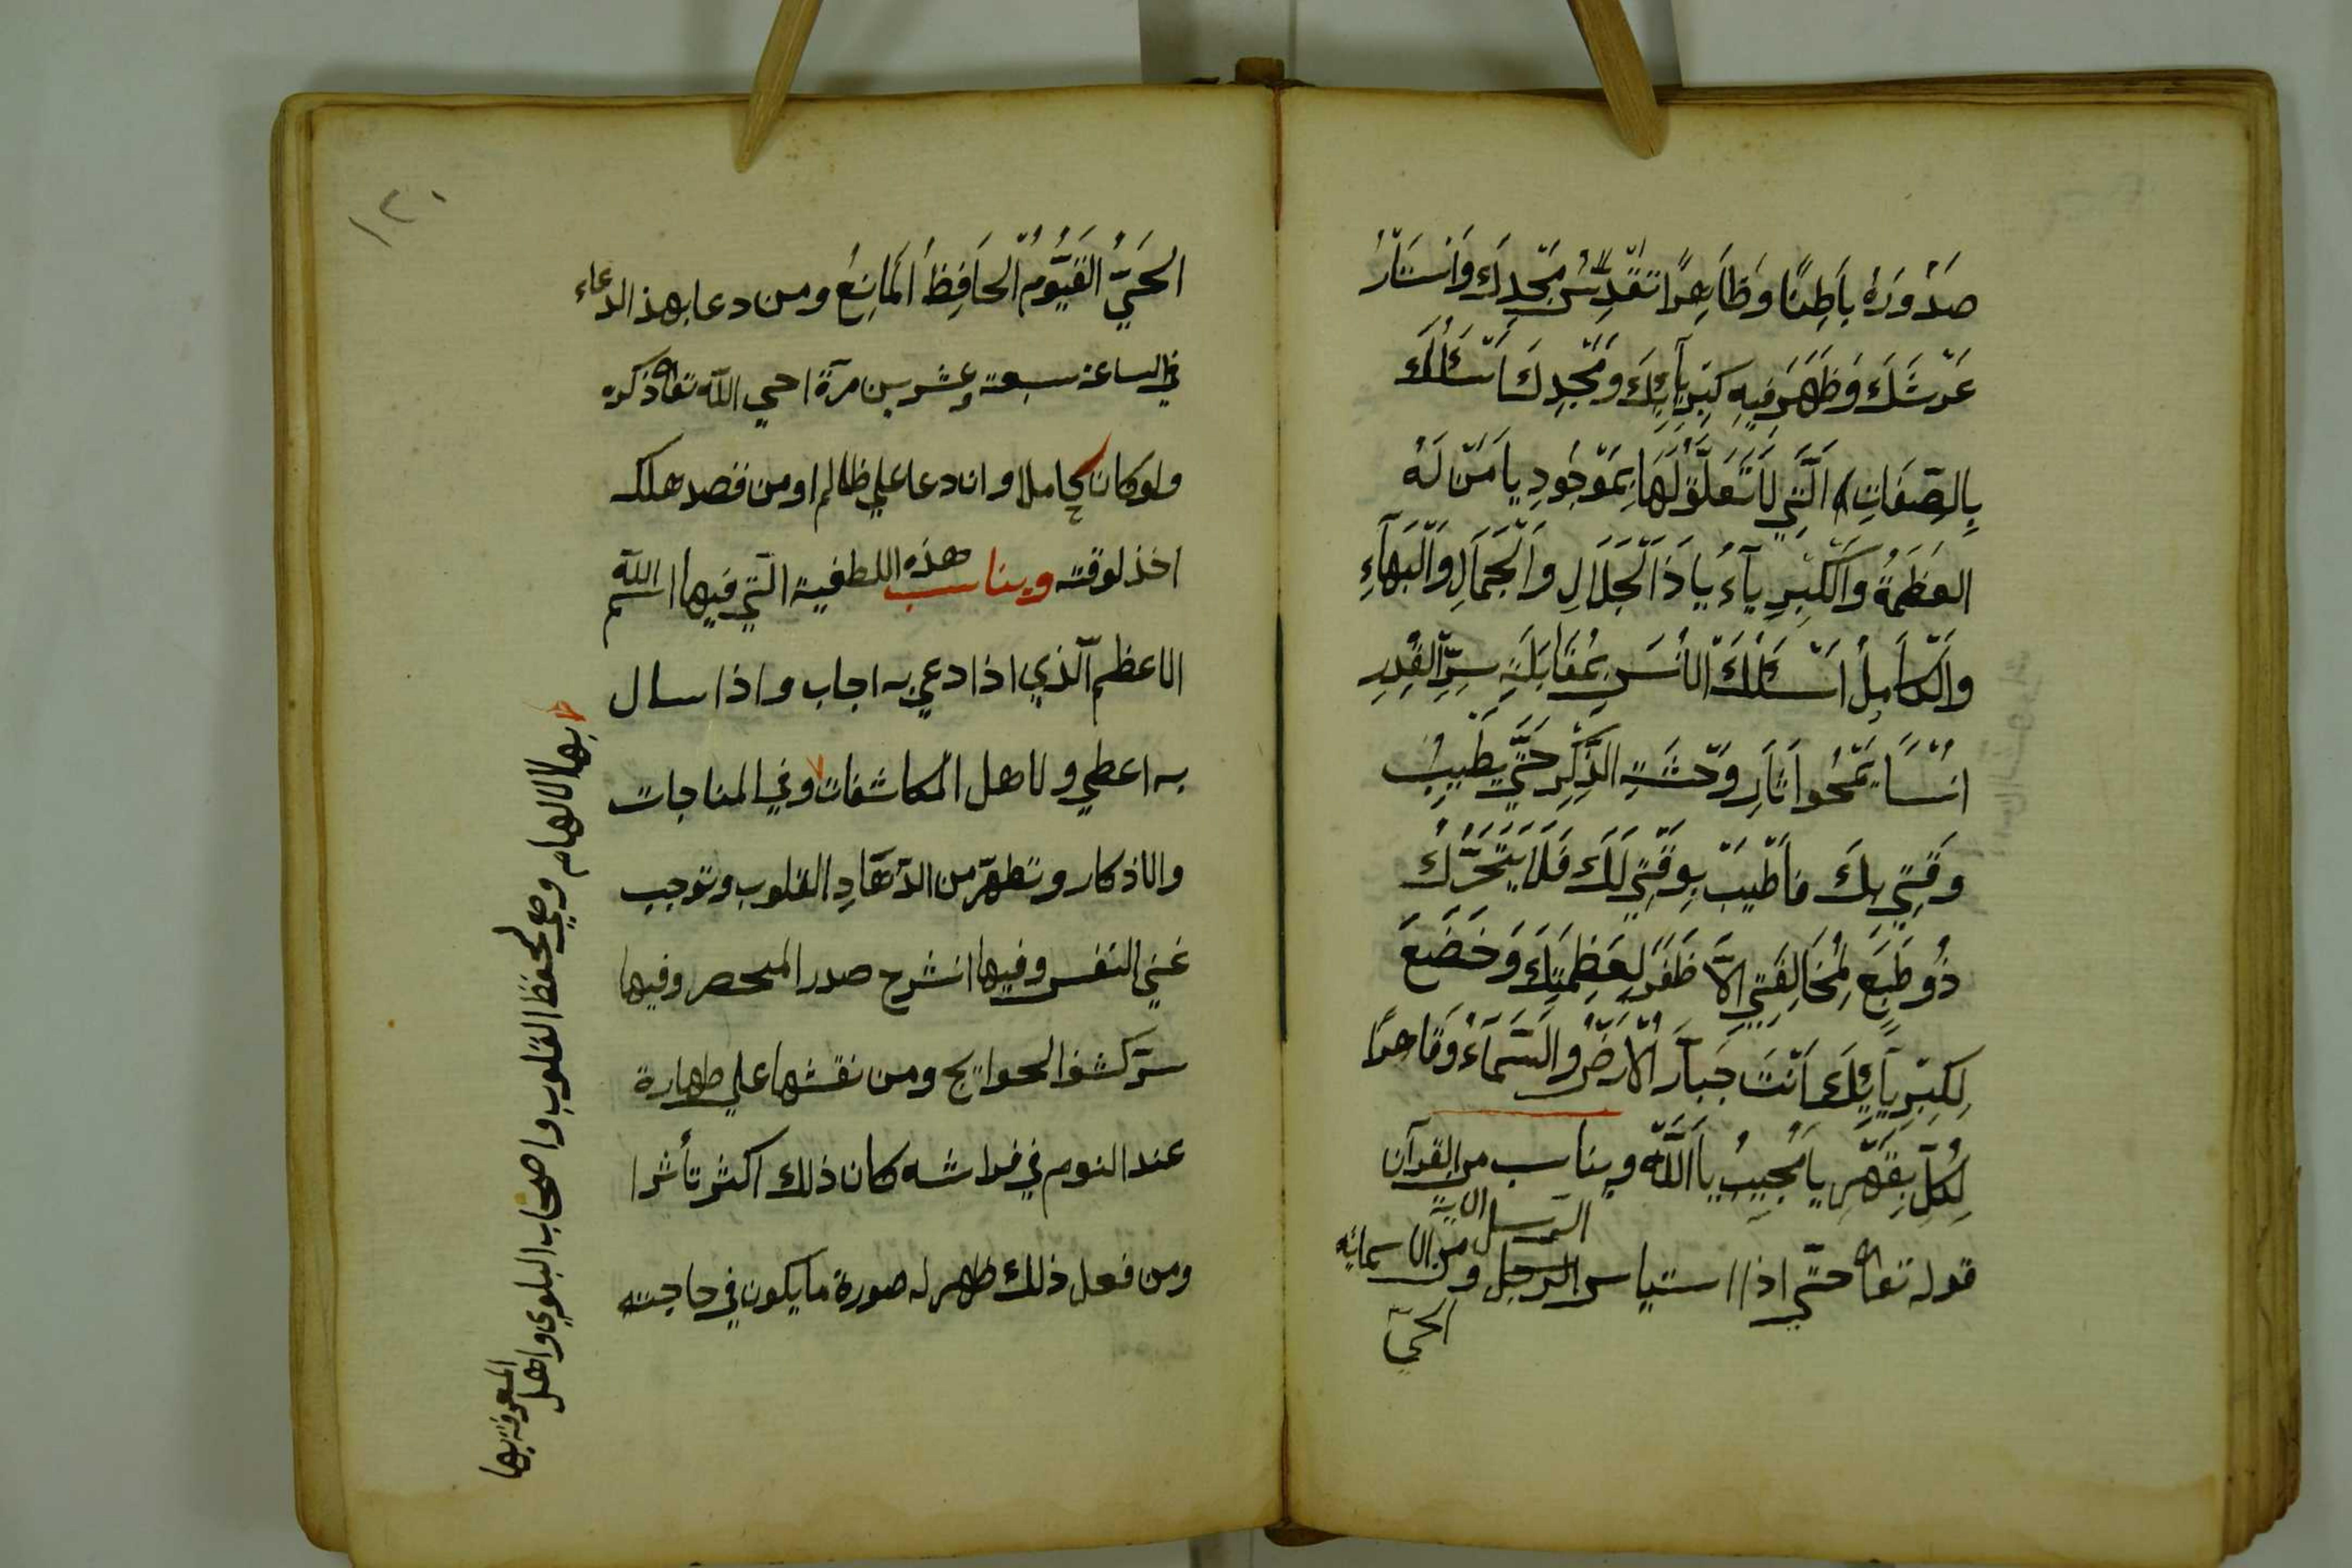 صَدُورُهُ بَاطِنًا وَظَاهِرًا تَقَدَّسَ مَجْدُكَ وَاسْتَنَارُ
عَرْشَكَ وَظَهَرَ فِيهِ كِبْرِيَآئِكَ وَمَجْدِكَ اَسْئَلُكَ
بِالصِّفَاتِ الَّتِي لَا تَعَلُّقَ لَهَا بِمَوْجُودِ يَا مَنْ لَهُ
الْعَظَمَةُ وَالْكِبْرِيَآءُ يَا ذَا الْجَلَالِ وَالْجَمَالِ وَالْبَهَآءِ
وَالْكَامِلُ اَسْئَلُكَ الْاُنْسَ بِمُقَابَلَةِ سِرِّ الْقَدَرِ
اُنْسًا يَمْحُوا اَثَارِ وَحْشَتِ الذِّكْرِ حَتَّي يَطِيبُ
وَقْتِي بِكَ فَاَطِيبَ بِوَقْتِي لَكَ فَلَا يَتَحَرَّكُ
ذُو طَبَعٍ لِمُخَالِفَتِي اِلَّا ظَفَرَ لِعَظَمَتِكَ وَخَضَعَ
لِكِبْرِيَآئِكَ اَنْتَ جَبَّارُ الْاَرْضُ وَالسَّمَآءُ وَقَاهِرًا
لِكُلِّ بِقَهْرِ يَا مُجِيبُ يَا اَللّٰهُ ويناسب من القرآن
قوله تعالى حتّي اذا استياس الرجل و من الاسمائه
الرسل الاية
الحي
١٢٠
الْحَيُّ الْقَيُّومُ الْحَافِظُ الْمَانِعُ ومن دعا بهذ الدعاء
في الساعة سبعة وعشرين مرة احي الله تعالى ذكره
ولو كان خاملا وان دعا علي ظالم او من قصد هلكه
اخذ لوقته ويناسب هذه اللطفية التي فيها اسم الله
الاعظم الّذي اذا دعي به اجاب واذا سال
به اعطي ولاهل المكاشفات وفي المناجات
والاذكار وتطهّر من القلوب وتوجب
غني النفس وفيها انشرح صدر المنحصر وفيها
سرّ كشف الحوايج ومن نقشها علي طهارة
عند النوم في فراشه كان ذلك اكثر تأثرا
ومن فعل ذلك ظهر له صورة ما يكون في حاجته
بها الالهام وهي لحفظ القلوب واصحاب البلوي واهل
المعرفة بها